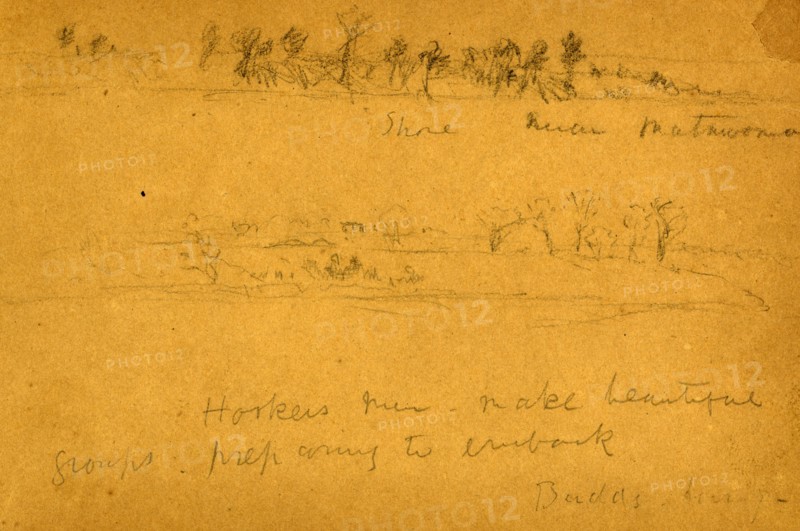 Shore near Matawoma
Hookers men - make beautiful
groups - preparing to embark
Budds
PHOTO12